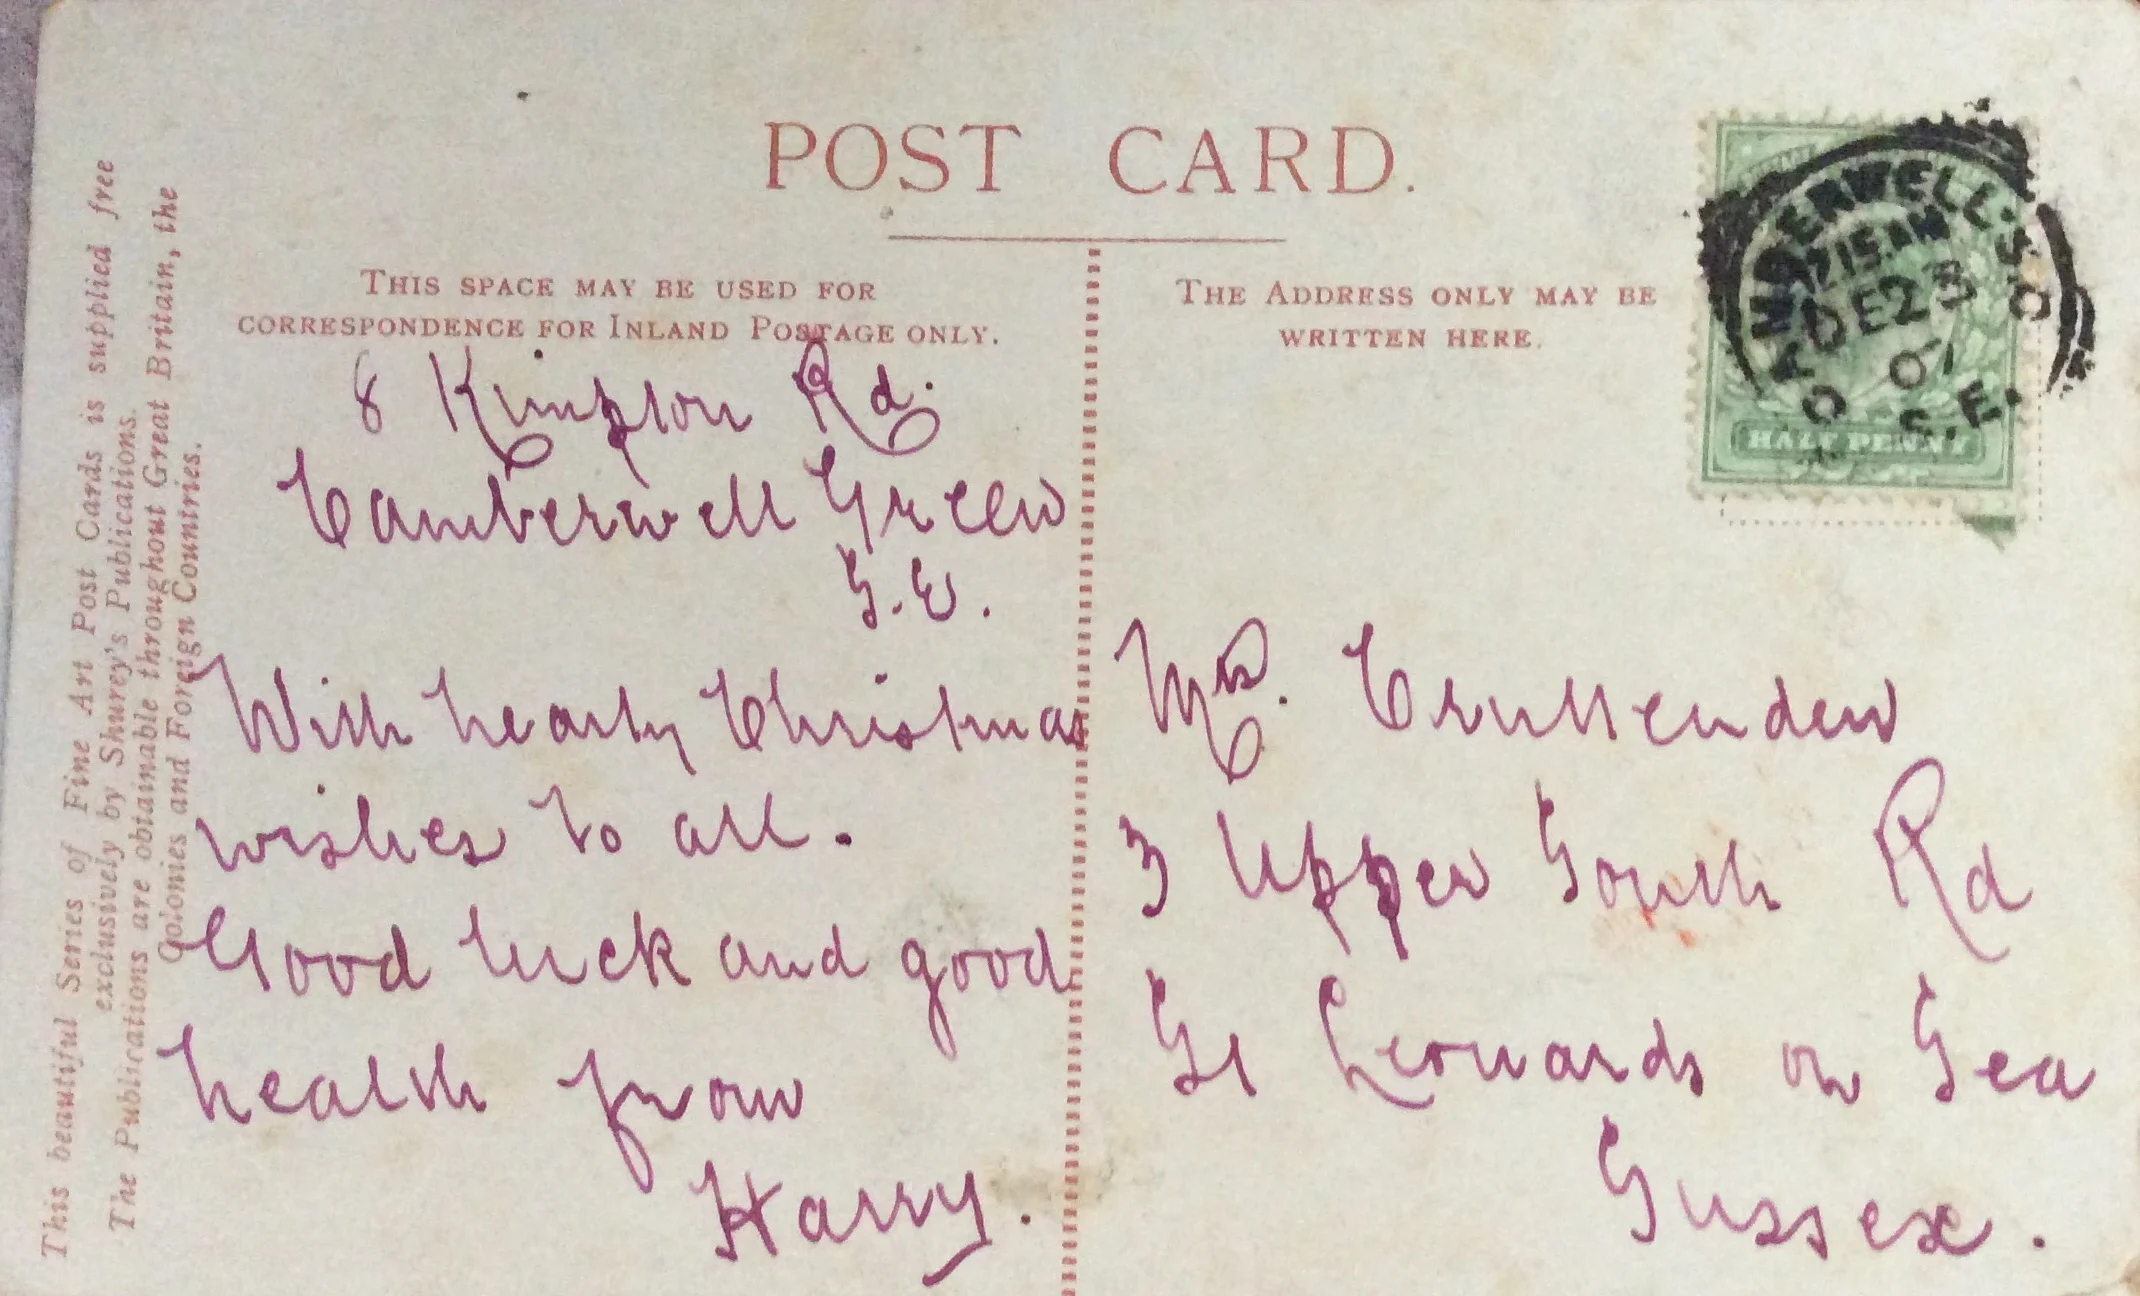 POST CARD.
This beautiful Series of Fine Art Post Cards is supplied free
exclusively by Shurey's Publications.
The Publications are obtainable throughout Great Britain, the
Colonies and Foreign Countries.
THIS SPACE MAY BE USED FOR
CORRESPONDENCE FOR INLAND POSTAGE ONLY.
8 Kimpton Rd.
Camberwell Green
S.E.
With hearty Christmas
wishes to all.
Good luck and good
health from
Harry.
THE ADDRESS ONLY MAY BE
WRITTEN HERE.
CAMBERWELL. S.O
12 15 AM
DE 23
07
S.E.
HALF PENNY
Mrs. Cruttenden
3 Upper South Rd
St Leonards on Sea
Sussex.